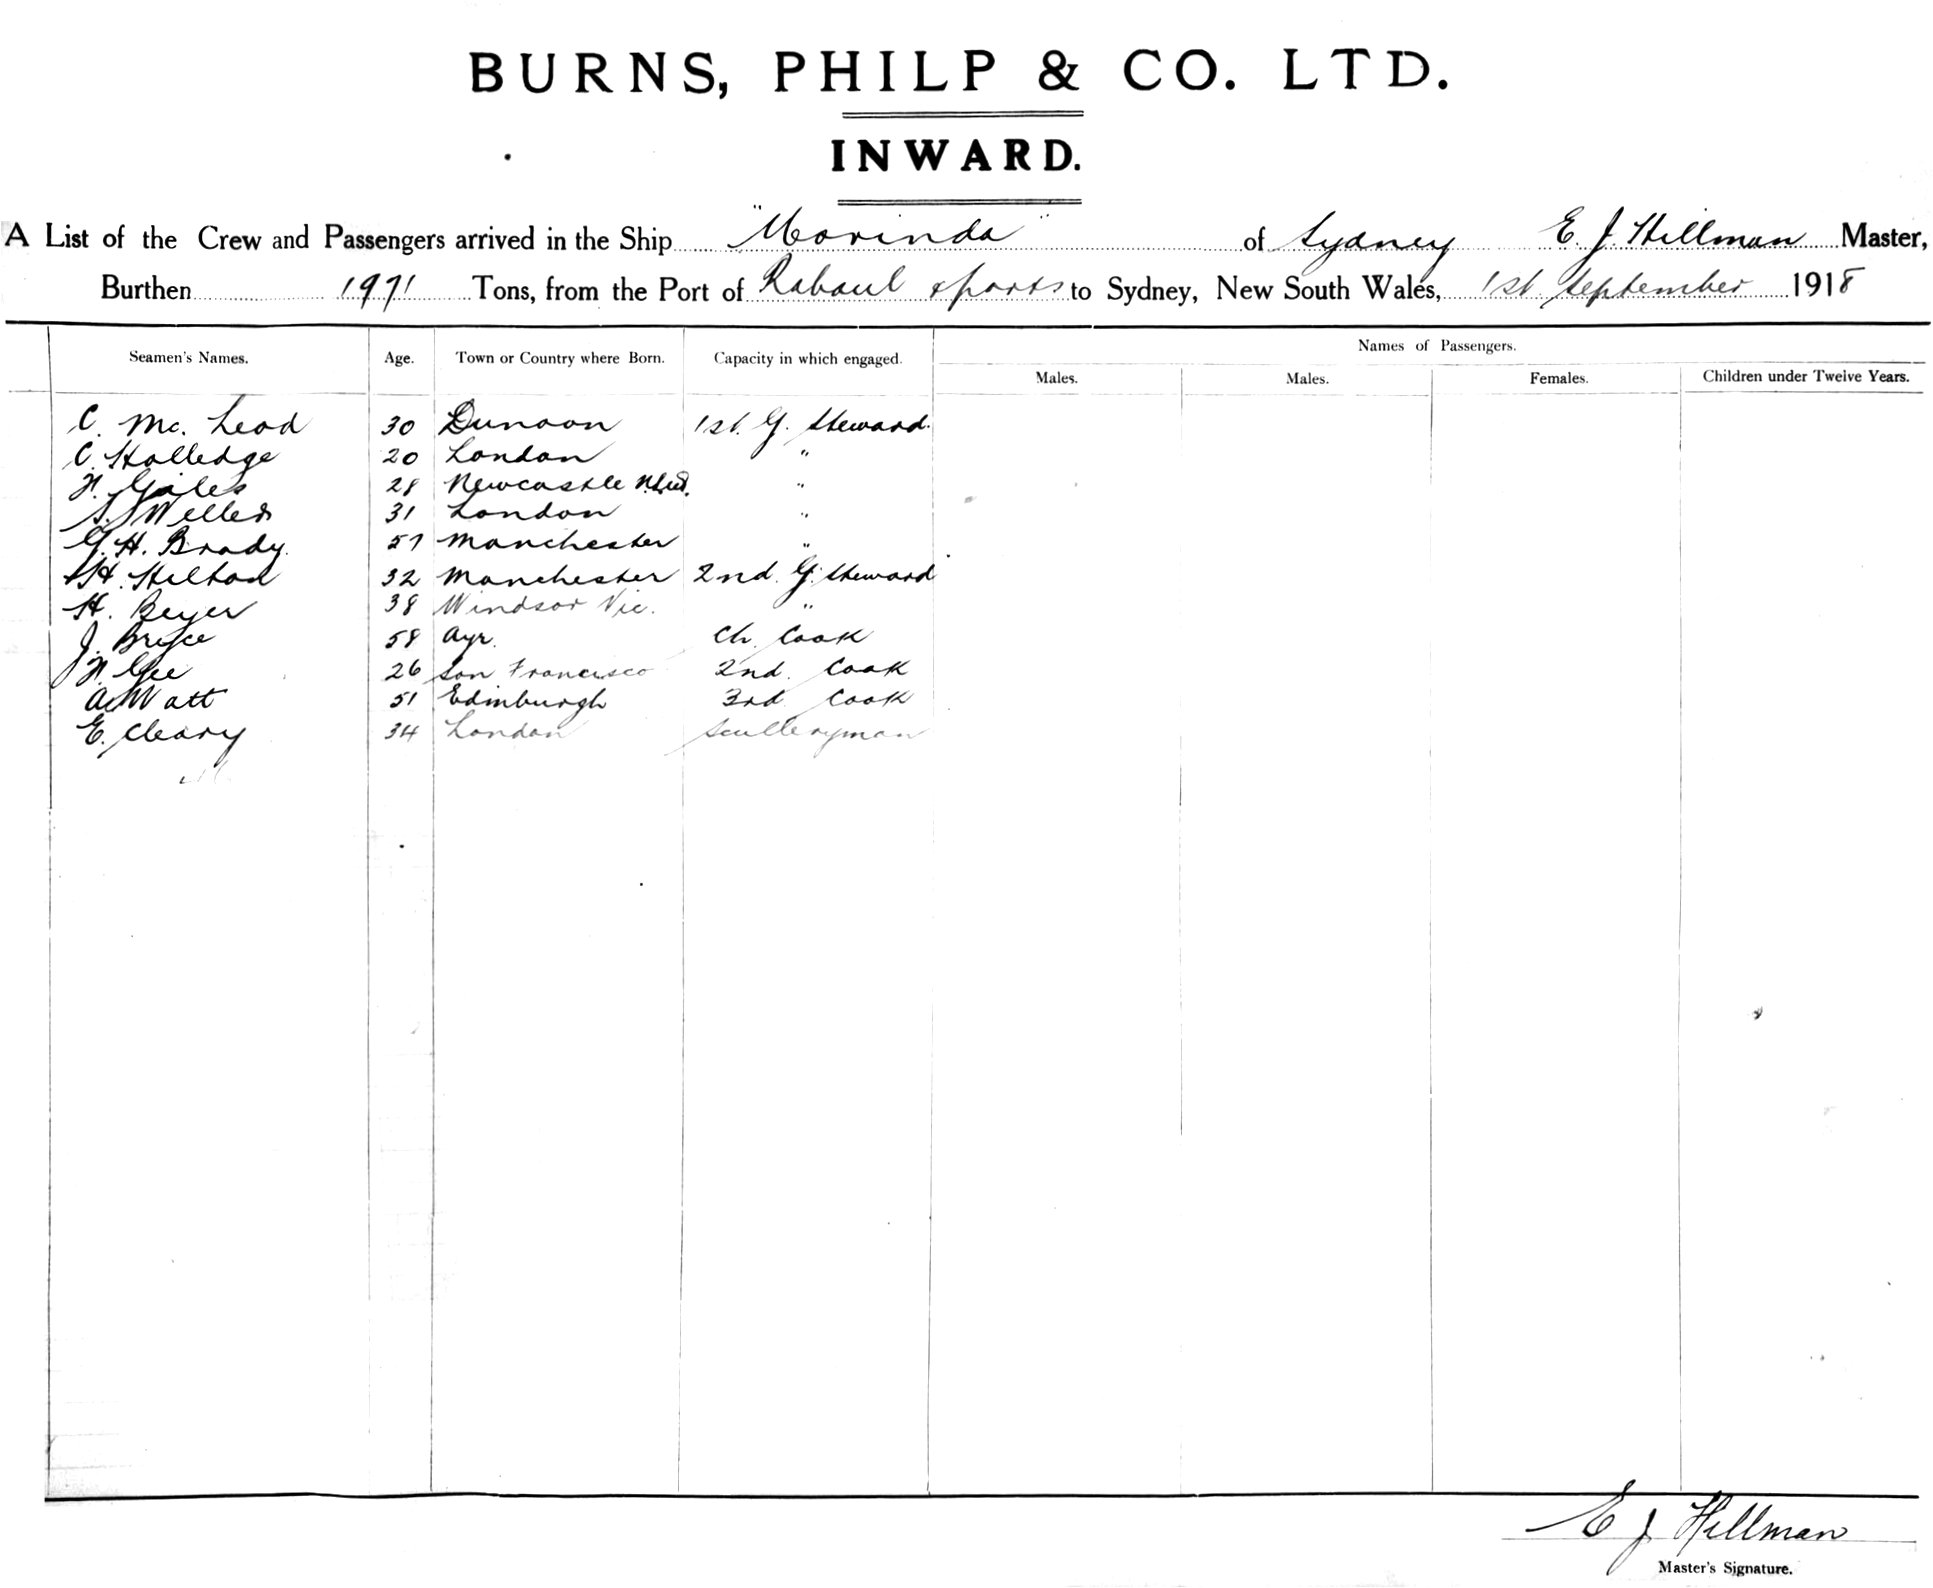 BURNS, PHILP & CO. LTD.
INWARD.
A List of the Crew and Passengers arrived in the Ship "Morinda" of Sydney E. J. Hillman Master,
Burthen 1971 Tons, from the Port of Rabaul & ports to Sydney, New South Wales, 1st September 1918
Seamen's Names. Age. Town or Country where Born. Capacity in which engaged. Names of Passengers.
Males. Males. Females. Children under Twelve Years.
C. Mc. Leod 30 Dunoon 1st. G. Steward.
C. Holledge 20 London "
Giles 28 Newcastle "
S. Weller 31 London "
G. H. Brady. 57 Manchester "
H. Hilton 32 Manchester 2nd. G. Steward
H. Beyer 38 Windsor Vic. "
J. Bryce 58 Ayr. Ch. Cook
Gee 26 San Francisco 2nd. Cook
A. Watt 51 Edinburgh 3rd Cook
E. Cleary 34 London Sculleryman
E J Hillman
Master's Signature.